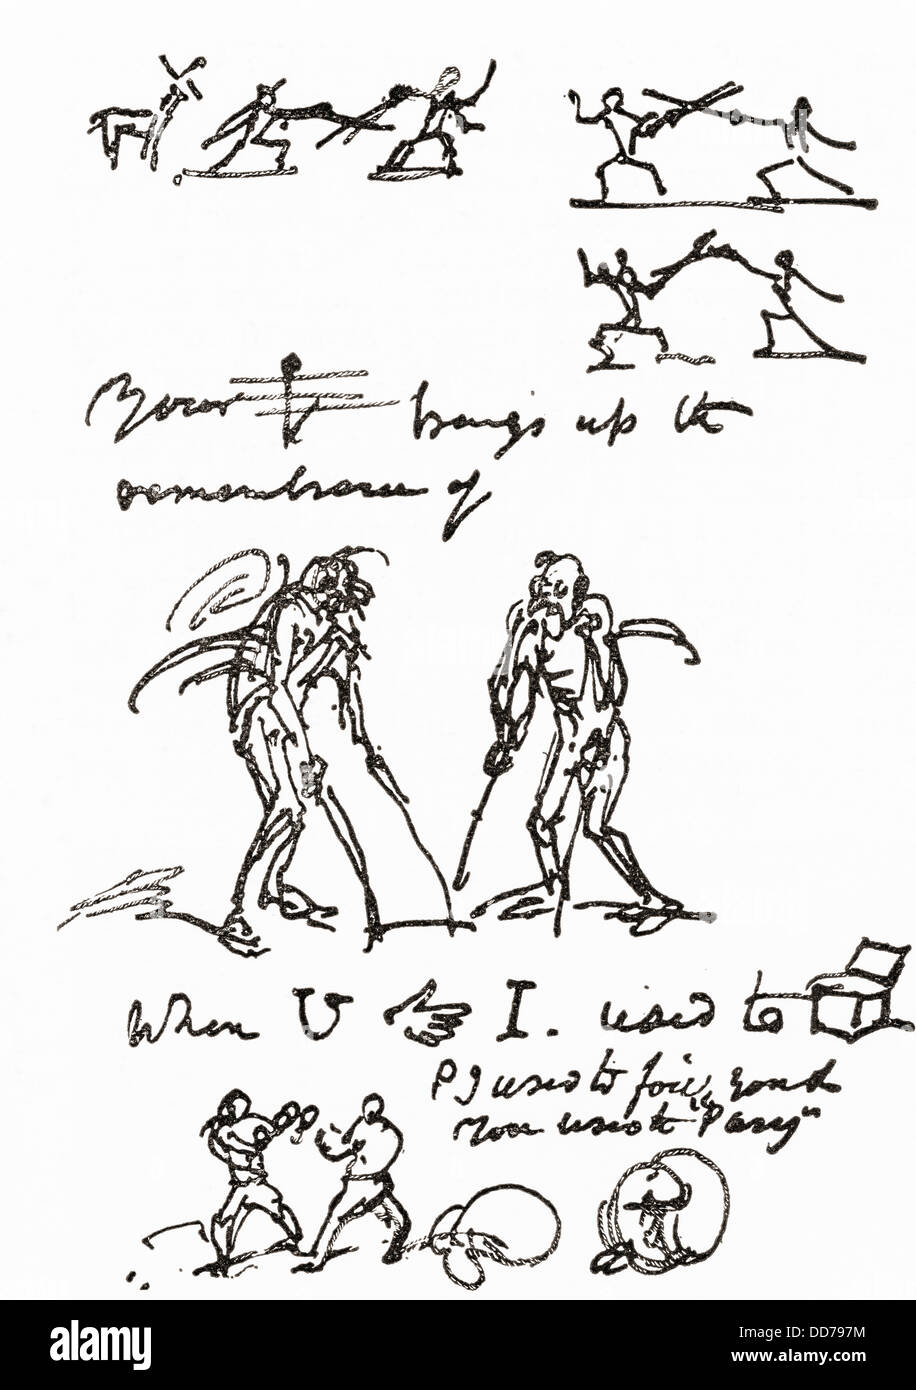 Your brings up the
remembrance of
When U I. used to
P I used to foil you &
You used to "Parry"
alamy
Image ID: DD797M
www.alamy.com